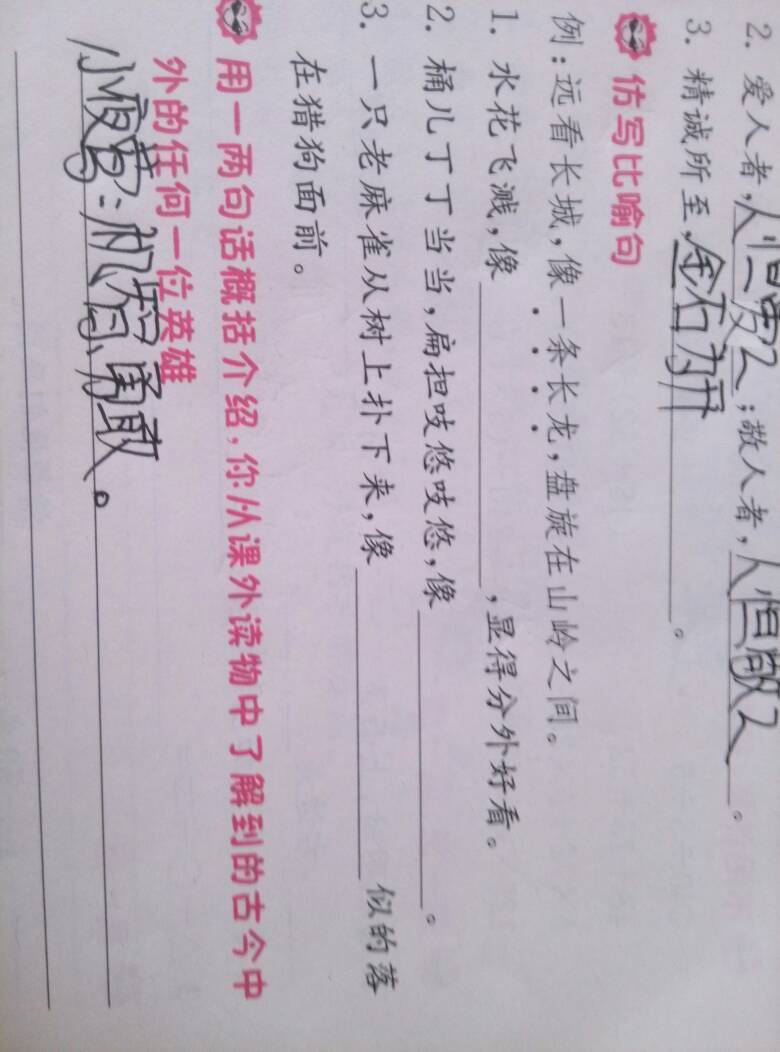 2. 爱人者,人恒爱之;敬人者,人恒敬之。
3. 精诚所至,金石为开。
仿写比喻句
例:远看长城,像一条长龙,盘旋在山岭之间。
1. 水花飞溅,像,显得分外好看。
2. 桶儿丁丁当当,扁担吱悠吱悠,像。
3. 一只老麻雀从树上扑下来,像似的落
在猎狗面前。
用一两句话概括介绍,你从课外读物中了解到的古今中
外的任何一位英雄
小夜莺:机智、勇敢。